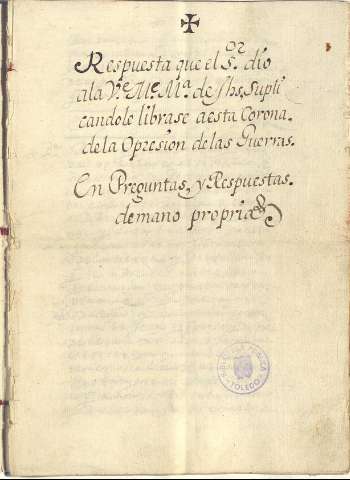 Respuesta que el S.or dio
a la V.e M.e M.a de Jhs, Supli
candole librase a esta Corona.
de la Opresion de las Guerras.
En Preguntas, y Respuestas.
de mano propria
TOLEDO